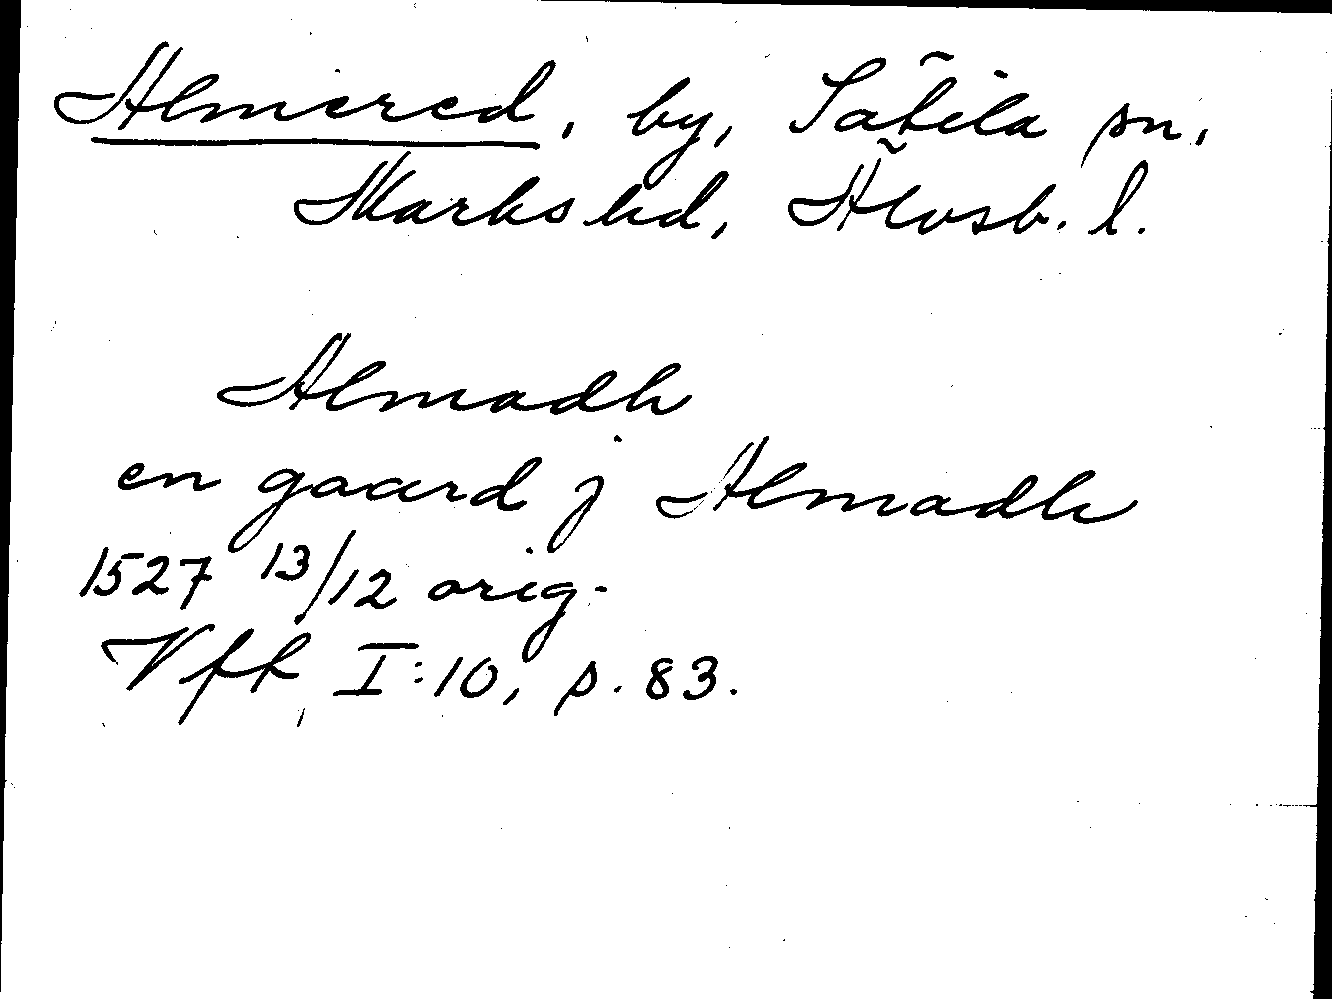 Almered, by, Sätila sn,
Marks hd, Älvsb. l.
Almadh
en gaard j Almadh
1527 13/12 orig.
Vfk I:10, p. 83.